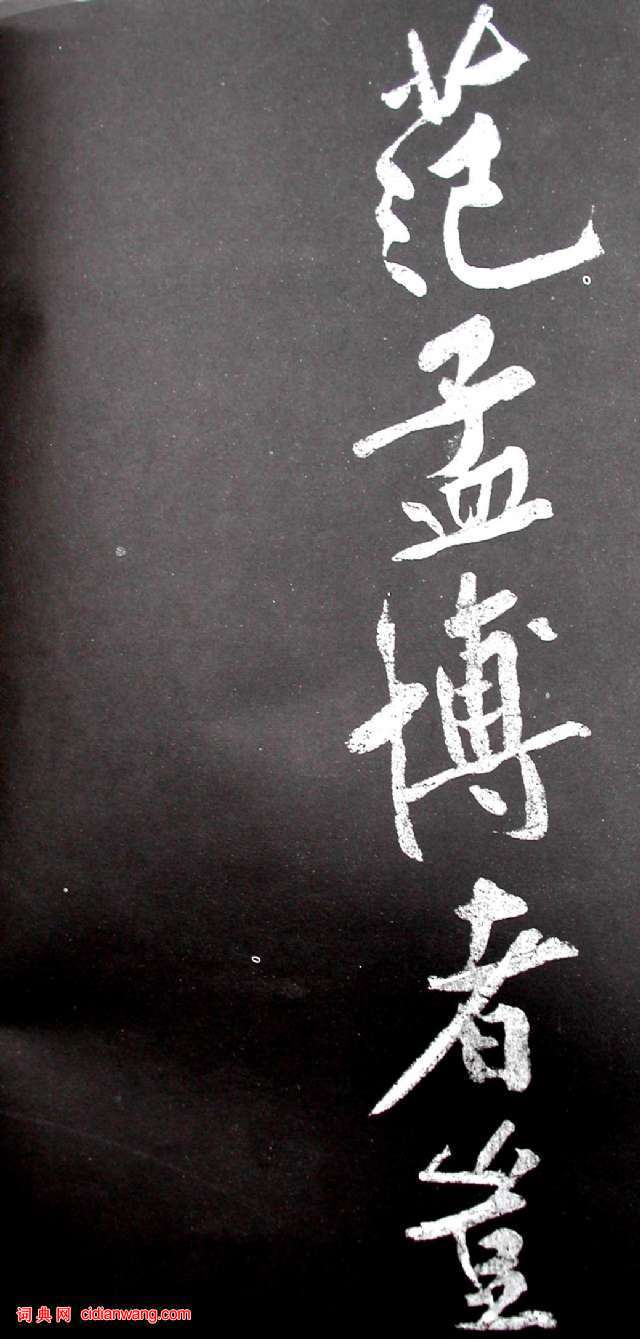 范孟博者豈
词典网 cidianwang.com